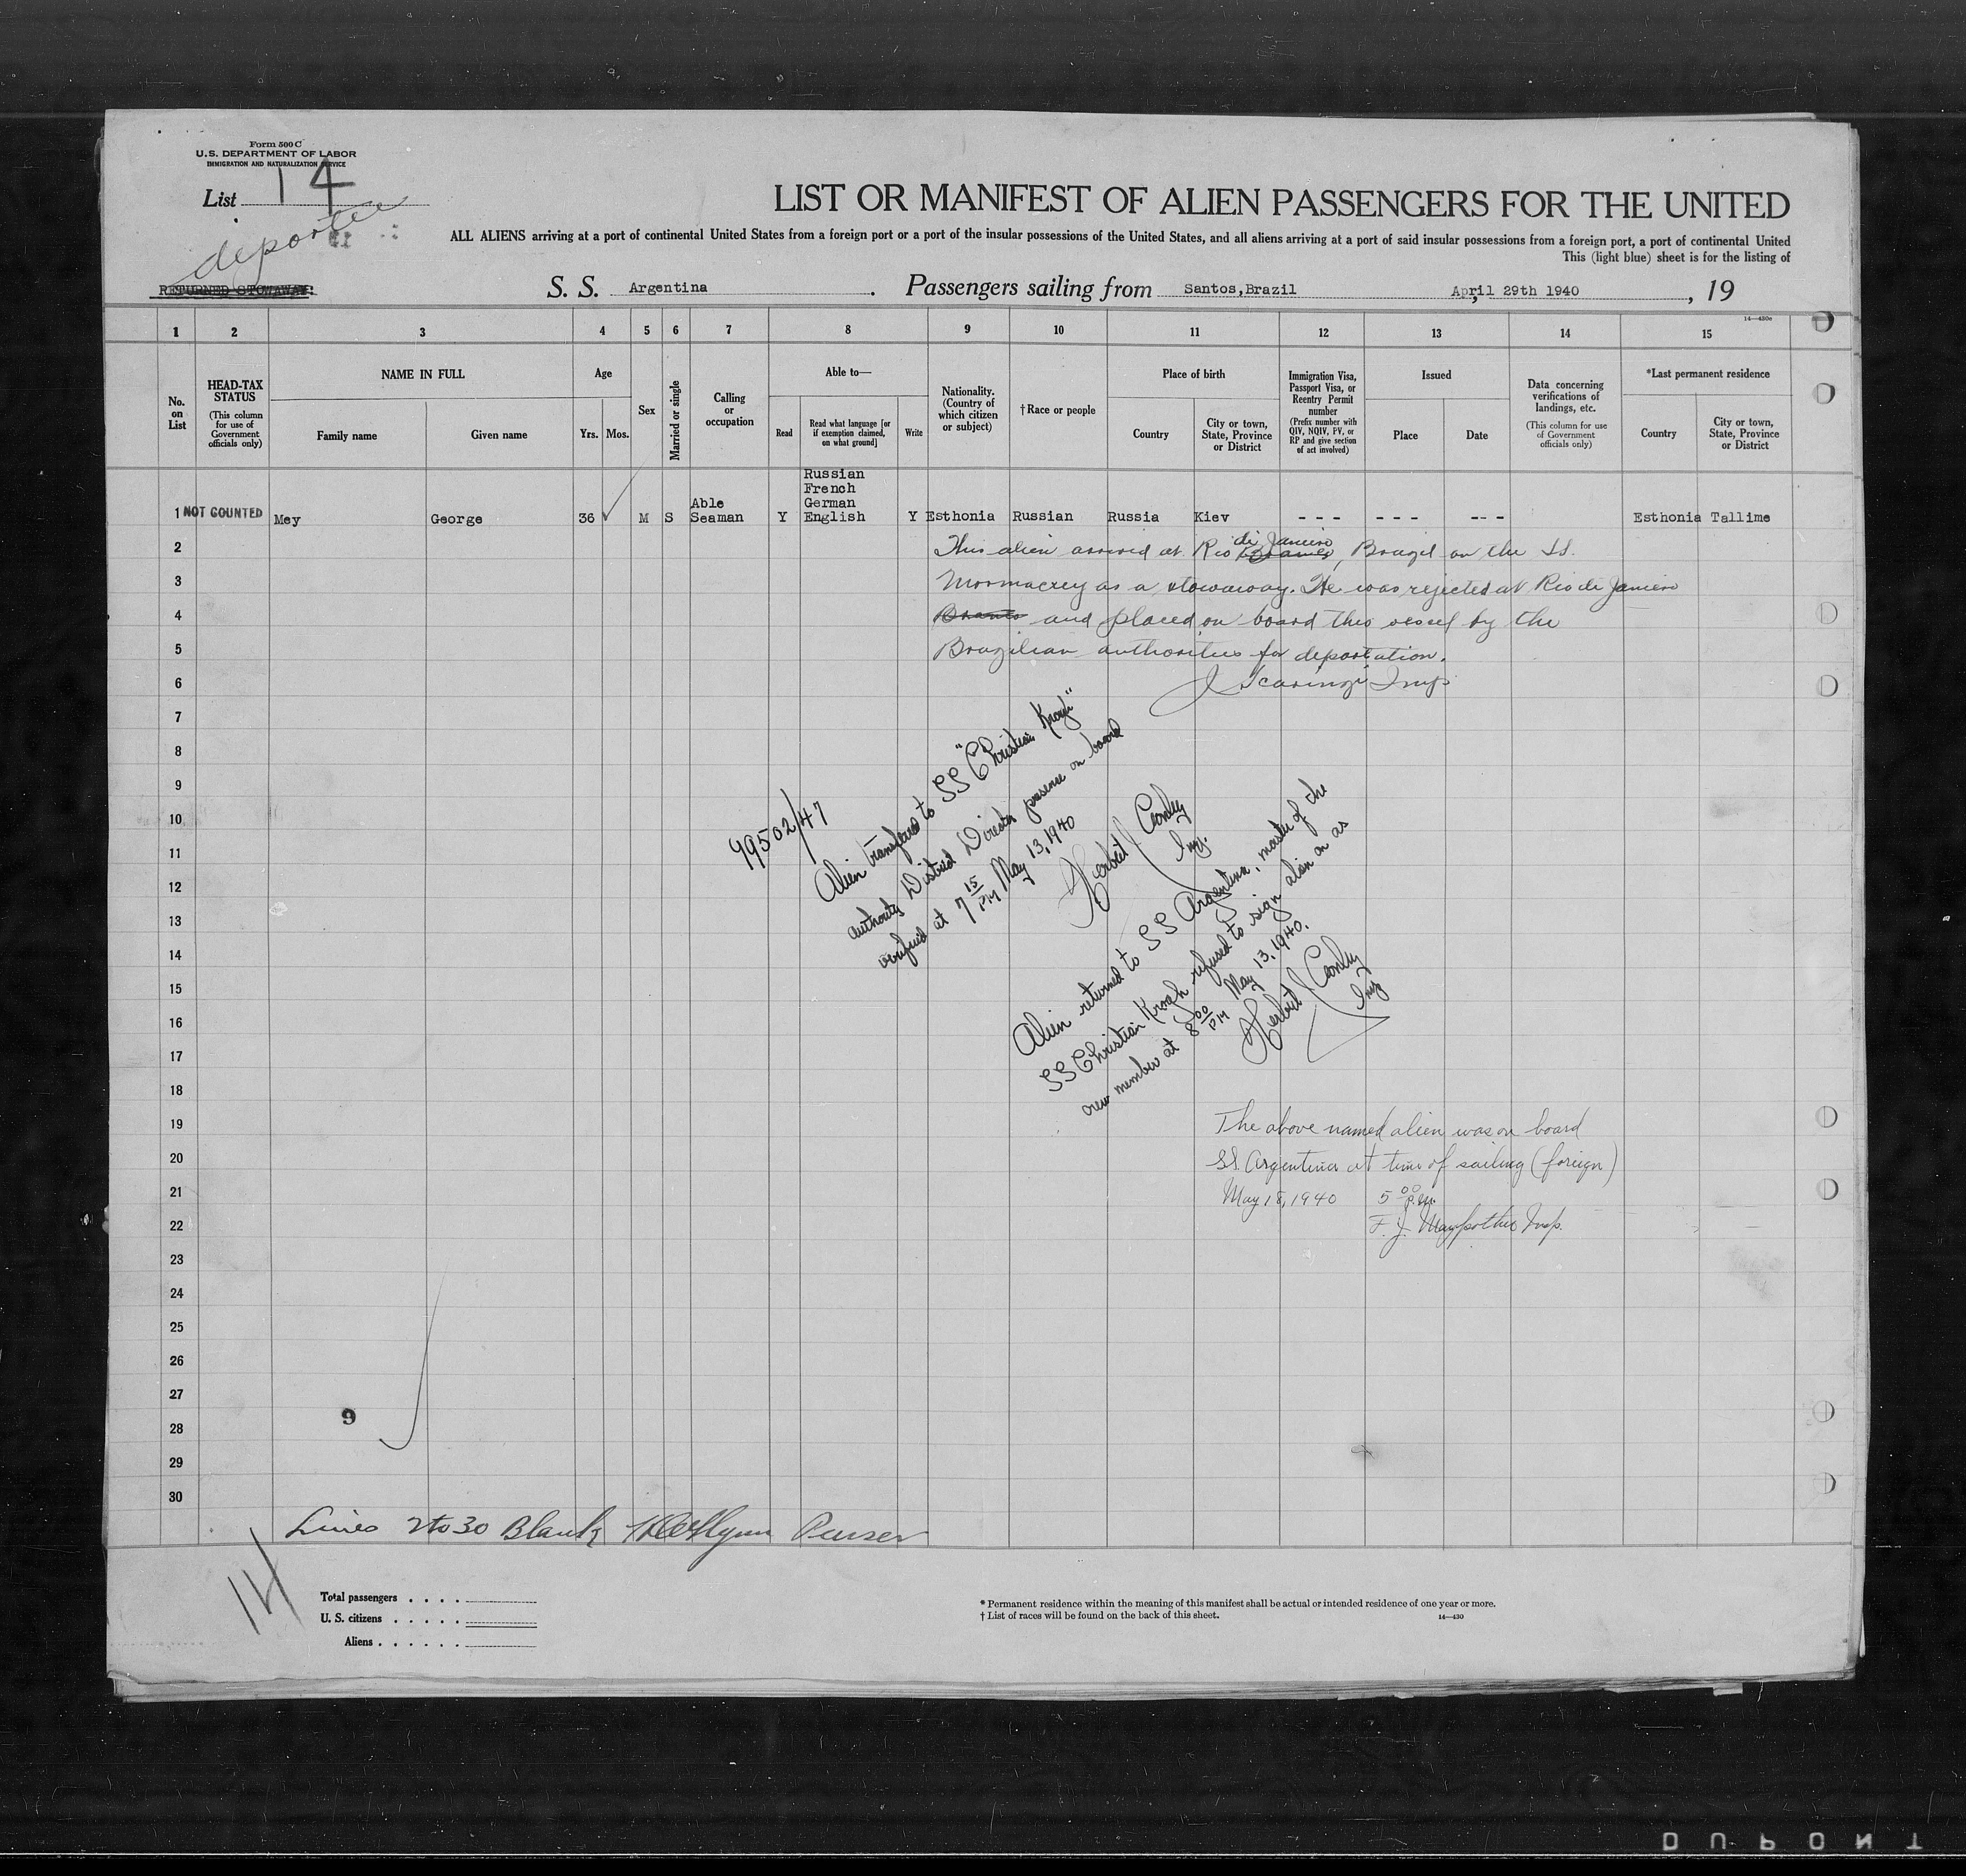 Form 500 C
U.S. DEPARTMENT OF LABOR
IMMIGRATION AND NATURALIZATION SERVICE
List 14
deportee
RETURNED STOWAWAY
LIST OR MANIFEST OF ALIEN PASSENGERS FOR THE UNITED
ALL ALIENS arriving at a port of continental United States from a foreign port or a port of the insular possessions of the United States, and all aliens arriving at a port of said insular possessions from a foreign port, a port of continental United
This (light blue) sheet is for the listing of
S. S. Argentina. Passengers sailing from Santos,Brazil April 29th 1940, 19
14—430c
1 2 3 4 5 6 7 8 9 10 11 12 13 14 15
No. on List
HEAD-TAX STATUS (This column for use of Government officials only)
NAME IN FULL
Family name
Given name
Age
Yrs. Mos.
Sex
Married or single
Calling or occupation
Able to—
Read
Read what language [or if exemption claimed, on what ground]
Write
Nationality. (Country of which citizen or subject)
†Race or people
Place of birth
Country
City or town, State, Province or District
Immigration Visa, Passport Visa, or Reentry Permit number (Prefix number with QIV, NQIV, PV, or RP and give section of act involved)
Issued
Place
Date
Data concerning verifications of landings, etc. (This column for use of Government officials only)
*Last permanent residence
Country
City or town, State, Province or District
Russian
French
German
1 NOT COUNTED Mey George 36 M S Able Seaman Y English Y Esthonia Russian Russia Kiev - - - - - - - - - Esthonia Tallime
2 This alien arrived at Rio di Janeiro, Brazil on the SS.
3 Mormacrey as a stowaway. He was rejected at Rio di Janiero
4 and placed on board this vessel by the
5 Brazilian authorities for deportation.
6 J Scaringi Insp
7
8
9
10
11
12
13
14
15
16
17
18
99502/47
Alien transferred to SS "Christian Krogh"
authority District Director presence on board
verified at 7 15 PM May 13, 1940
Herbert Conley
Insp.
Alien returned to SS Argentina, master of the
SS Christian Krogh refused to sign alien on as
crew member at 8 00 PM May 13, 1940.
Herbert Conley
Insp
19 The above named alien was on board
20 SS. Argentina at time of sailing (foreign)
21 May 18, 1940 5 00 p.m.
22 F. J. Insp.
23
24
25
26
27
28
29
30
9
Lines 2 to 30 Blank Purser
14
Total passengers
U. S. citizens
Aliens
* Permanent residence within the meaning of this manifest shall be actual or intended residence of one year or more.
† List of races will be found on the back of this sheet.
14—430
DUPONT